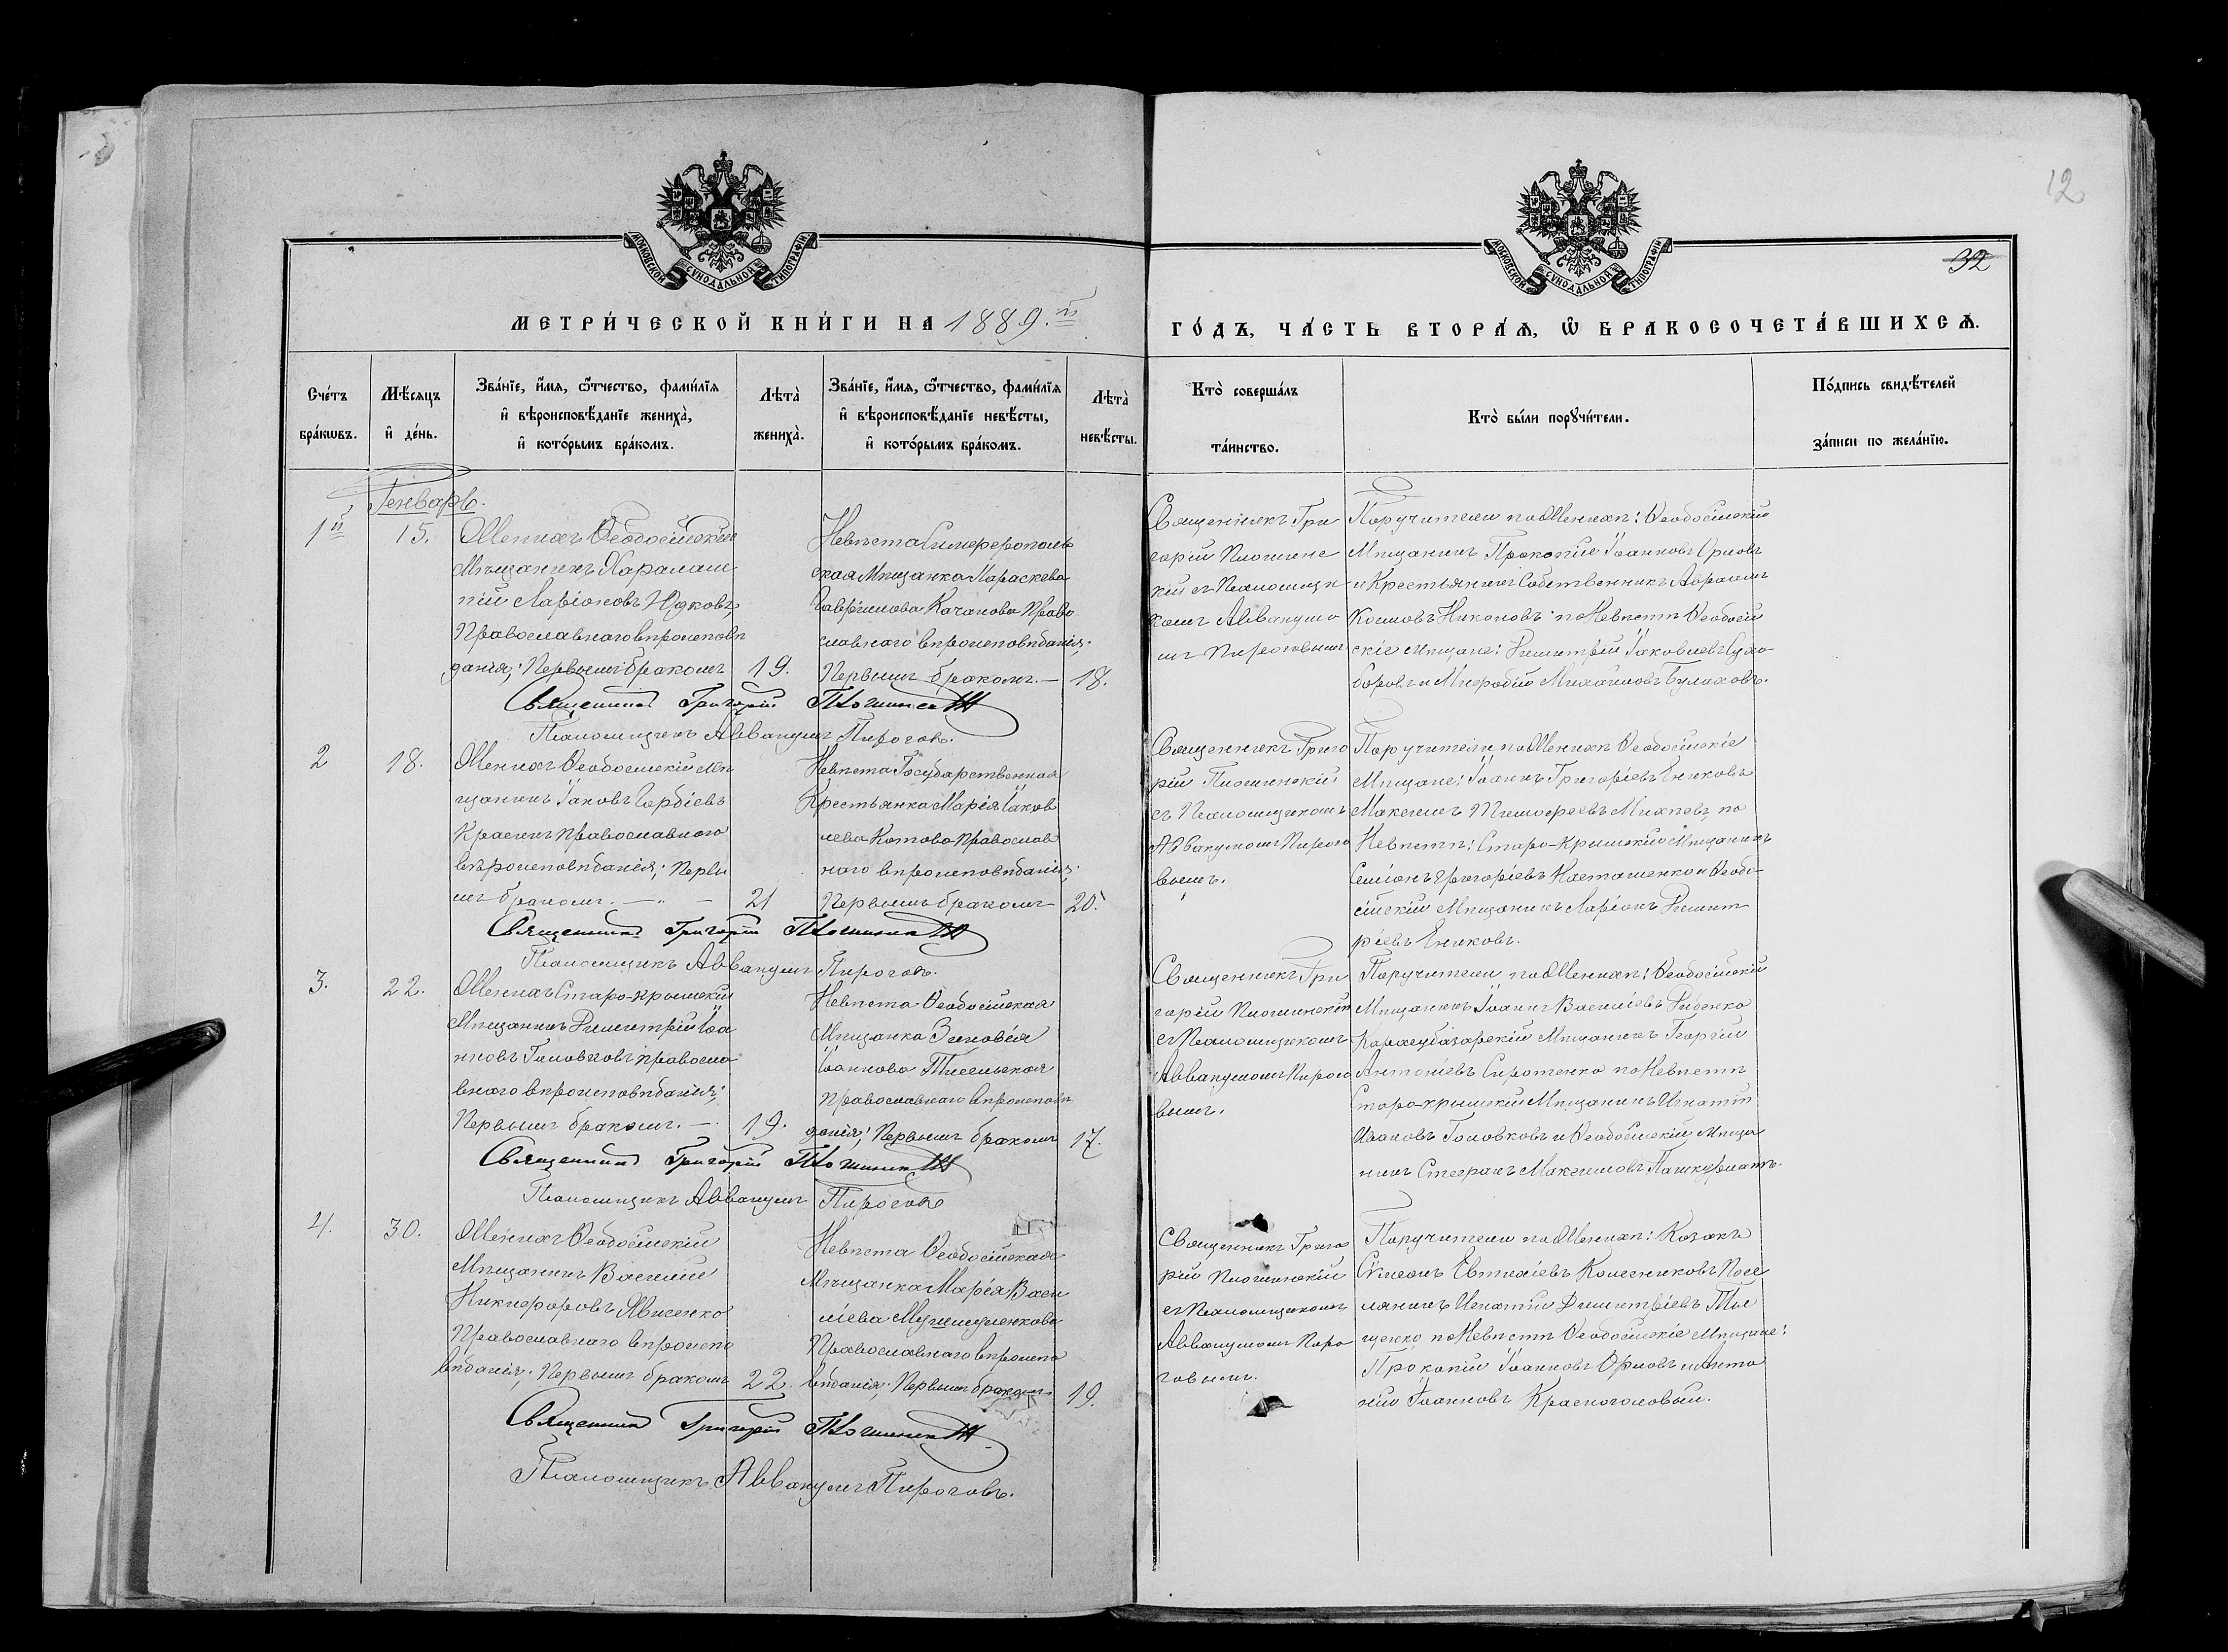 12
32
МОСКОВСКОЙ СѴНОДАЛЬНОЙ ТИПОГРАФІИ
МОСКОВСКОЙ СѴНОДАЛЬНОЙ ТИПОГРАФІИ
МЕТРИ́ЧЕСКОЙ КНИ́ГИ НА 1889.й
ГО́ДЪ, ЧА́СТЬ ВТОРА́Ѧ, Ѿ БРАКОСОЧЕТА́ВШИХСѦ.
Сче́тъ
бра́кѡвъ.
Мѣ́сяцъ
и҆ де́нь.
Зва́нїе, и҆́мѧ, ѻ҆́тчество, фами́лїѧ
и҆ вѣроисповѣ́данїе жениха̀,
и҆ кото́рымъ бра́комъ.
Лѣта̀
жениха̀.
Зва́нїе, и҆́мѧ, ѻ҆́тчество, фами́лїѧ
и҆ вѣроисповѣ́данїе невѣ́сты,
и҆ кото́рымъ бра́комъ.
Лѣта̀
невѣ́сты.
Кто̀ соверша́лъ
та́инство.
Кто̀ бы́ли порꙋчи́тели.
По́дпись свидѣ́телей
за́писи по жела́нїю.
Генварь.
1й
15.
Женихъ Ѳеодосійскій
Мѣщанинъ Харалам
пій Ларіоновъ Юдковъ,
Православнаго вѣроисповѣ
данія; Первымъ бракомъ
19.
Невѣста Симферополь
ская Мѣщанка Параскева
Гавріилова Качанова Право
славнаго вѣроисповѣданія;
Первымъ бракомъ. —
18.
Священникъ Гри
горій
кій съ Псаломщи
комъ Аввакумо
мъ Пироговымъ
Поручители по Женихѣ: Ѳеодосійскій
Мѣщанинъ Прокопій Іоанновъ Орловъ
и Крестьянинъ Собственникъ Аврамъ
Космовъ Никоновъ: по Невѣстѣ Ѳеодосій
скіе мѣщане: Димитрій Іаковлевъ Сухо
боровъ и Меѳодій Михаиловъ Булаховъ.
Священникъ Григорій
Псаломщикъ Аввакумъ Пироговъ.
2
18.
Женихъ Ѳеодосійскій Мѣ
щанинъ Іаковъ Гордіевъ
Красинъ Православнаго
вѣроисповѣданія; Первы
мъ бракомъ. — " —
21
Невѣста Государственная
Крестьянка Марія Іаков
лева Котова Православ
наго вѣроисповѣданія;
Первымъ бракомъ
20.
Священникъ Григо
рій
съ Псаломщикомъ
Аввакумомъ Пирого
вымъ.
Поручители по Женихѣ Ѳеодосійскіе
Мѣщане: Іоаннъ Григоріевъ Ениковъ
Максимъ Тимоѳеевъ Михѣевъ по
Невѣстѣ: Старо-Крымскій Мѣщанинъ
Симіонъ Григоріевъ Косташенко и Ѳеодо-
сійскій Мѣщанинъ Ларіонъ Димит
ріевъ Ениковъ.
Священникъ Григорій
Псаломщикъ Аввакумъ Пироговъ.
3.
22.
Женихъ Старо-крымскій
Мѣщанинъ Димитрій Іоа
нновъ Головковъ правосла
внаго вѣроисповѣданія;
Первымъ бракомъ. —
19.
Невѣста Ѳеодосійская
Мѣщанка Зиновія
Іоаннова
Православнаго вѣроисповѣ
данія; Первымъ бракомъ
17.
Священникъ Гри
горій
съ Псаломщикомъ
Аввакумомъ Пирого
вымъ.
Поручители по Женихѣ: Ѳеодосійскій
Мѣщанинъ Іоаннъ Василіевъ Диденко
Карасубазарскій Мѣщанинъ Георгій
Антоніевъ Сиротенко по Невѣстѣ
Старо-крымскій Мѣщанинъ Игнатій
Ивановъ Головковъ и Ѳеодосійскій Мѣща
нинъ Стефанъ Максимовъ
Священникъ Григорій
Псаломщикъ Аввакумъ Пироговъ
4.
30.
Женихъ Ѳеодосійскій
Мѣщанинъ Василій
Никифоровъ
Православнаго вѣроиспо
вѣданія; Первымъ бракомъ
22.
Невѣста Ѳеодосійская
Мѣщанка Марія Васи
ліева
Православнаго вѣроиспо
вѣданія; Первымъ бракомъ
19.
Священникъ Григо
рій
съ Псаломщикомъ
Аввакумомъ Пиро
говымъ.
Поручители по Женихѣ: Козакъ
Сѵмеонъ Евтихіевъ Колесниковъ Посе
лянинъ Игнатій Димитріевъ Ти
щенко по Невѣстѣ Ѳеодосійскіе Мѣщане:
Прокопій Іоанновъ Орловъ и Анто
ній Іоанновъ Красноголовый.
Священникъ Григорій
Псаломщикъ Аввакумъ Пироговъ.